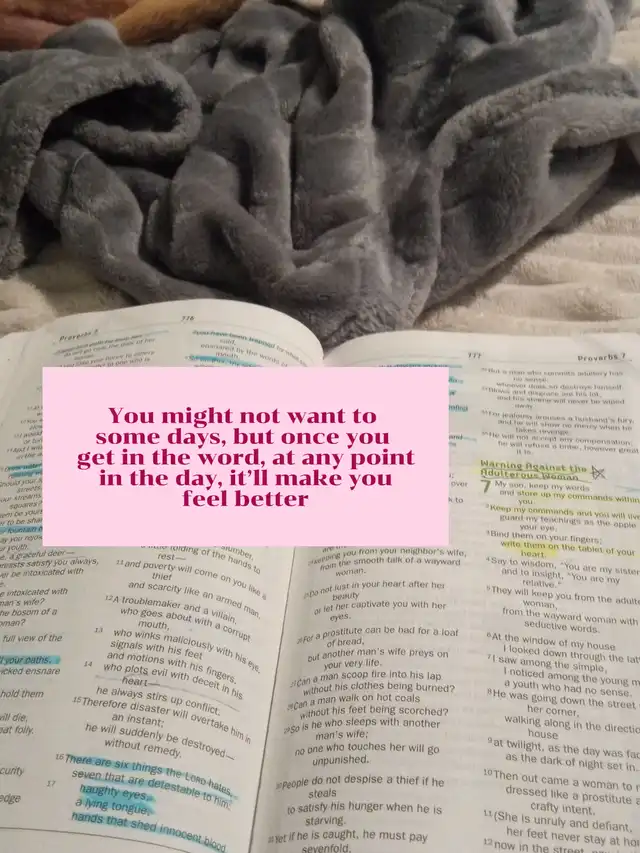 776
Proverbs 7
777
You might not want to
some days, but once you
get in the word, at any point
in the day, it'll make you
feel better
folding of the hands to
rest—
11 and poverty will come on you like a
thief
and scarcity like an armed man.
12 A troublemaker and a villain,
who goes about with a corrupt
mouth,
13 who winks maliciously with his eye,
signals with his feet
and motions with his fingers,
14 who plots evil with deceit in his
heart—
he always stirs up conflict.
15 Therefore disaster will overtake him in
an instant;
he will suddenly be destroyed—
without remedy.
16 There are six things the LORD hates,
seven that are detestable to him:
17 haughty eyes,
a lying tongue,
hands that shed innocent blood
a graceful deer—
full view of the
your paths.
hold them
will die,
keeping you from your neighbor's wife,
from the smooth talk of a wayward
woman.
25 Do not lust in your heart after her
beauty
or let her captivate you with her
eyes.
26 For a prostitute can be had for a loaf
of bread,
but another man's wife preys on
your very life.
27 Can a man scoop fire into his lap
without his clothes being burned?
28 Can a man walk on hot coals
without his feet being scorched?
29 So is he who sleeps with another
man's wife;
no one who touches her will go
unpunished.
30 People do not despise a thief if he
steals
to satisfy his hunger when he is
starving.
31 Yet if he is caught, he must pay
sevenfold,
But a man who commits adultery has
no sense;
whoever does so destroys himself.
Blows and disgrace are his lot,
and his shame will never be wiped
away.
For jealousy arouses a husband's fury,
and he will show no mercy when he
takes revenge.
He will not accept any compensation;
he will refuse a bribe, however great
it is.
Warning Against the
Adulterous Woman
7 My son, keep my words
and store up my commands within
you.
2 Keep my commands and you will live;
guard my teachings as the apple
your eye.
3 Bind them on your fingers;
write them on the tablet of your
heart.
4 Say to wisdom, "You are my sister,"
and to insight, "You are my
relative."
5 They will keep you from the adulte
woman,
from the wayward woman with
seductive words.
6 At the window of my house
I looked down through the lat
7 I saw among the simple,
I noticed among the young m
a youth who had no sense.
8 He was going down the street
her corner,
walking along in the directio
house
9 at twilight, as the day was fad
as the dark of night set in.
10 Then out came a woman to m
dressed like a prostitute a
crafty intent.
11 (She is unruly and defiant,
her feet never stay at ho
12 now in the street,